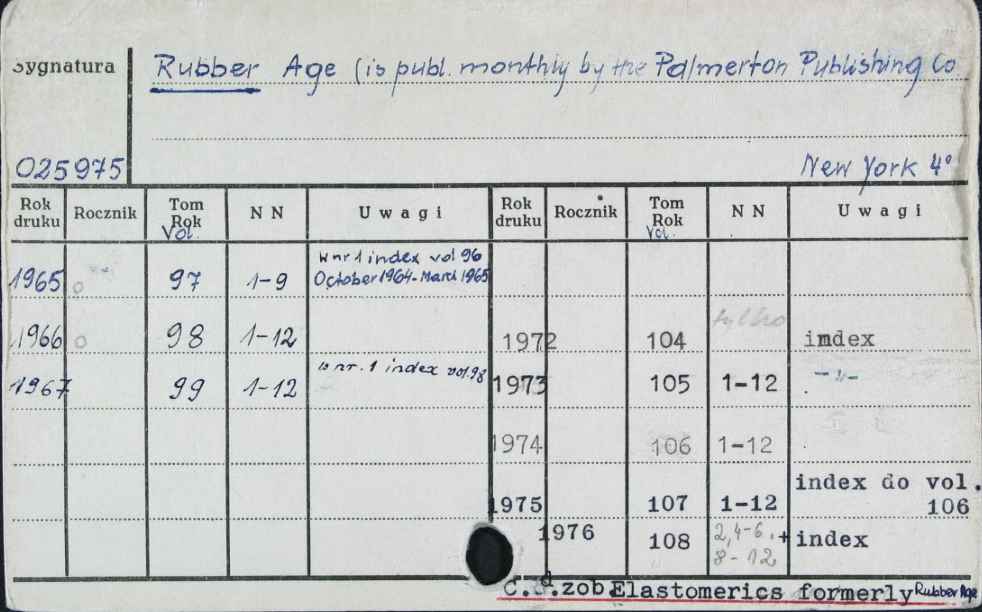 Sygnatura Rubber Age (is publ. monthly by the Palmerton Publishing Co
025975 New York 4°
Rok druku Rocznik Tom Rok Vol. NN Uwagi Rok druku Rocznik Tom Rok Vol. NN Uwagi
1965 97 1-9 W nr 1 index vol 96 October 1964-March 1965
1966 98 1-12 1972 104 tylko imdex
1967 99 1-12 w nr. 1 index vol. 98 1973 105 1-12 -"-
1974 106 1-12
1975 107 1-12 index do vol. 106
1976 108 2,4-6. + 8-12 index
C.d.zob.Elastomerics formerly Rubber Age